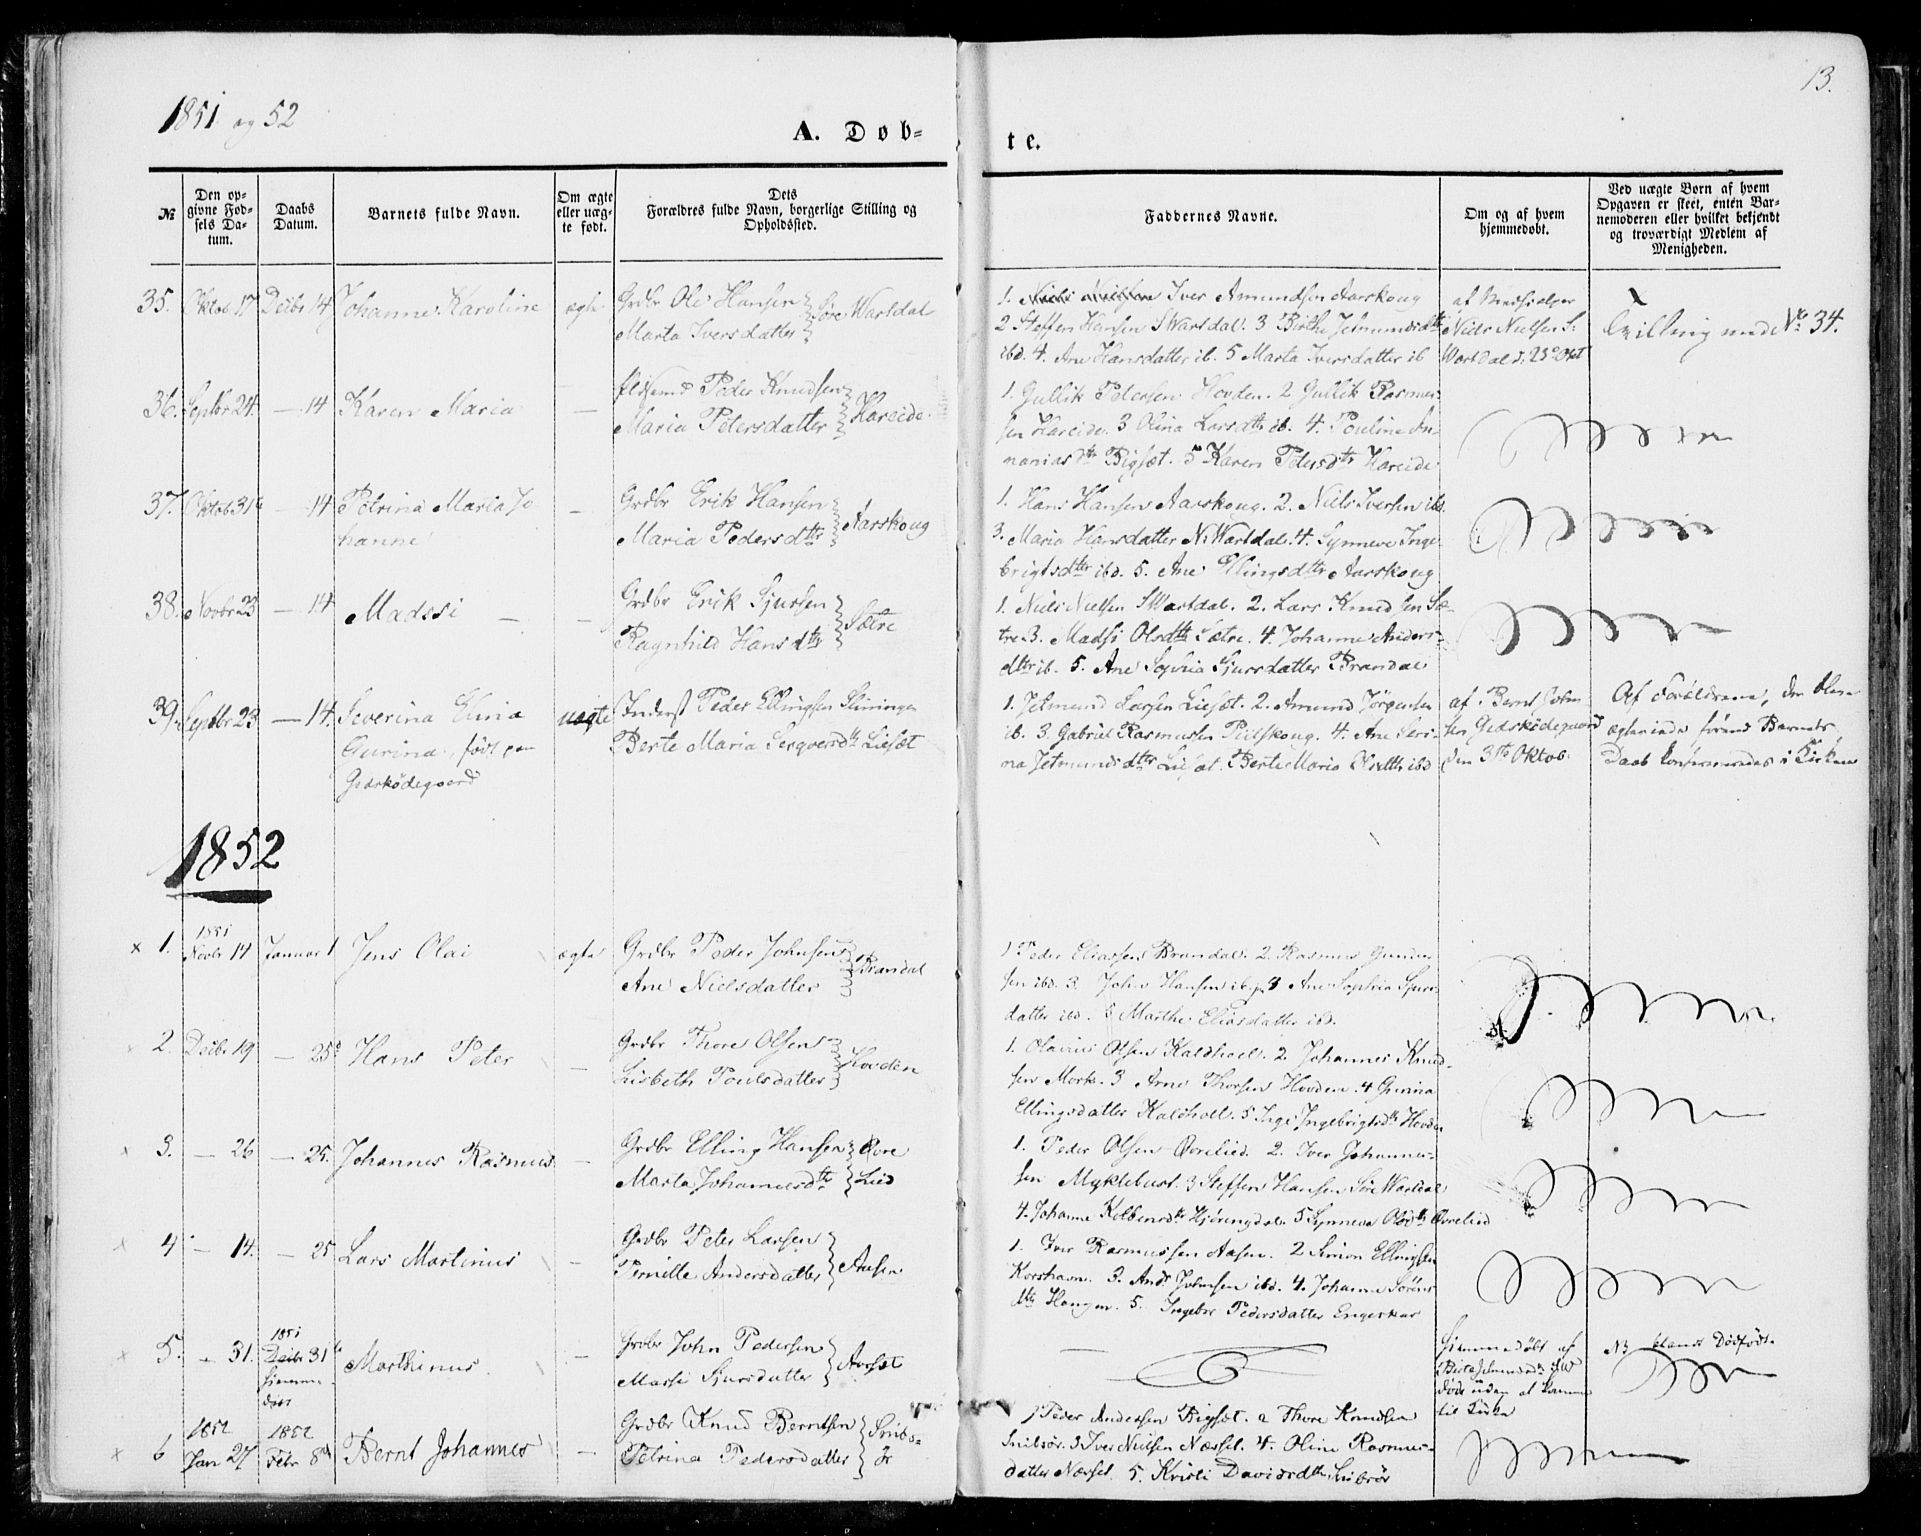 13.
1851 og 52
A. Døb=
te.
No
Den op-
givne Fød-
sels Da-
tum.
Daabs
Datum.
Barnets fulde Navn.
Om ægte
eller uæg-
te født.
Dets
Forældres fulde Navn, borgerlige Stilling og
Opholdssted.
Faddernes Navne.
Om og af hvem
hjemmedøbt.
Ved uægte Børn af hvem
Opgaven er skeet, enten Bar-
nemoderen eller hvilket bekjendt
og troværdigt Medlem af
Menigheden.
35. Oktob 17 Decbr 14 Johanne Karoline ægte Grdbr Ole Hansen Søre Wartdal
Marta Iversdatter
1. Niels Nielsen Iver Amundsen Aarskoug
2 Steffen Hansen SWartdal. 3 Birthe Jetmundsdtr
ibd. 4. Ane Hansdatter ib. 5 Marta Iversdatter ib
af
Niels Nielsen S:
Wartdal d: 23de Okt
Tvilling med No 34.
36. Septbr 24. — 14 Karen Maria — Peder Knudsen Hareide
Maria Petersdatter
1. Gullik Petersen Hovden. 2 Gullik Rasmus-
sen Hareide. 3 Olina Larsdtr ib. 4. Pauline An-
naniasdtr Bigsæt. 5 Karen Petersdtr Hareide
37. Oktob 31 — 14 Petrina Maria Jo
hanne
— Grdbr Erik Hansen Aarskoug
Maria Pedersdtr
1. Hans Hansen Aarskoug. 2. Niels Iversen ibd.
3. Maria Hansdatter N. Wartdal. 4. Synneve Inge-
brigtsdtr ibd. 5. Ane Ellingsdtr Aarskoug
38. Novbr 23 — 14 Madssi — Grdbr Erik Sjursen Sætre
Ragnhild Hansdtr
1. Niels Nielsen SWartdal. 2. Lars Knudsen Sæ-
tre 3. Madsi Olsdtr Sætre. 4. Johanne Anders-
dtr ib. 5. Ane Sophia Sjursdatter Brandal
39. Septbr 23 — 14. Severina Elina
Gurina, født paa
Gjerskødegaard
uægte Inderst Peder Ellingsen Slinningen
Berte Maria Liesæt
1. Jetmund Larsen Liesæt. 2. Amund Jørgensen
ib. 3. Gabriel Rasmussen Pilskoug. 4. Ane Seri-
na Jetmundsdtr Liesæt. Berte Maria Olsdtr ibd
af Bernt John
sen Gjerskødegaard
den 31te Oktob.
Af Forældrene, der bleve
ægteviede førend Barnets
Daab konfirmeredes i Kirken
1852
x 1. 1851
Novbr 14 Januar 1 Jens Olai ægte Grdbr Peder Johnsen Brandal
Ane Nielsdatter
1 Peder Eliassen Brandal. 2. Rasmus Gunder
sen ibd. 3. John Hansen ibid. 4 Ane Sophia Sjurs-
datter ibd. 5 Marthe Eliasdatter ibd.
x 2. Decbr 19 — 25de Hans Peter — Grdbr Thore Olsen Hovden
Lisbeth Poulsdatter
1. Olavius Olsen Kaldhoel. 2. Johannes Knud-
sen Mork. 3 Arne Thorsen Hovden. 4 Gurina
Ellingsdatter Kaldholl. 5 Inge Ingebrigtsdtr Hovden
x 3. — 26 — 25. Johannes Rasmus — Grdbr Elling Hansen Øvre
Marta Johannesdtr Lied
1. Peder Olsen Øvrelied. 2. Iver Johannes-
sen Myklebust. 3 Steffen Hansen Søre Wartdal
4. Johanne Kolbensdtr Hjørengdal. 5 Synneva Olsdtr Øvrelied
x 4 — 14. — 25 Lars Martinus — Grdbr Peter Larsen Aasen
Pernille Andersdatter
1. Iver Rasmussen Aasen. 2 Simon Ellingsen
Korshavn. 3. Ands Johnsen ibd. 4. Johanne Sørens
dtr Haugen. 5. Ingebor Pedersdatter Engeskar
x 5. — 31. 1851
Decbr 31
hjemme-
døbt
Marthinus — Grdbr John Pedersen Aarsæt
Massi Sjursdatter
hjemmedøbt af
døde uden at komme
til Kirke
NB blandt Dødfødte
x 6 1852
Jan 27 1852
Febr 8de Bernt Johannes — Grdbr Knud Berntsen Snibs-
Petrina Pedersdatter ør
1 Peder Andersen Bigsæt. 2 Thore Knudsen
Snibsør. 3 Iver Nielsen Næsset. 4. Oline Rasmus-
datter Næsset. 5. Kristi Davidsdtr Snibsør